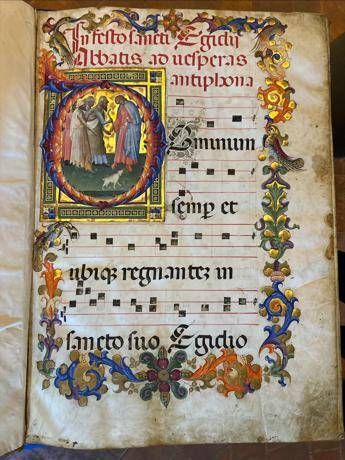 In festo sancti Egidij
Abbatis ad uesperas
antiphona
DOminum
semp et
ubiqz regnantez in
sancto suo Egidio